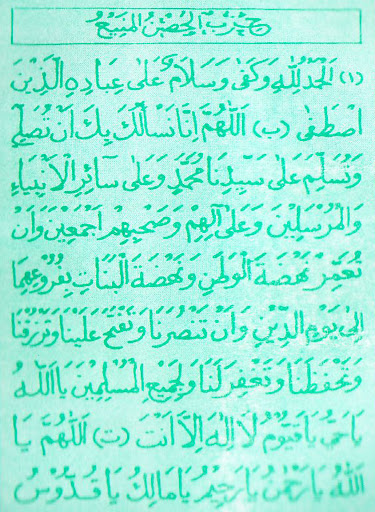 حِزْبُ الْحِصْنِ الْمَنِيْعُ
(١) اَلْحَمْدُ لِلّٰهِ وَكَفٰى وَسَلَامٌ عَلٰى عِبَادِهِ الَّذِيْنَ
اصْطَفٰى (ب) اَللّٰهُمَّ اِنَّا نَسْأَلُكَ بِكَ اَنْ تُصَلِّيَ
وَتُسَلِّمَ عَلٰى سَيِّدِنَا مُحَمَّدٍ وَعَلٰى سَائِرِ الْاَنْبِيَاءِ
وَالْمُرْسَلِيْنَ وَعَلٰى اٰلِهِمْ وَصَحْبِهِمْ اَجْمَعِيْنَ وَاَنْ
تُعَمِّرَ نَهْضَةَ الْوَطَنِ وَنَهْضَةَ الْبَنَاتِ بِفُرُوْعِهِمَا
اِلٰى يَوْمِ الدِّيْنِ وَاَنْ تَنْصُرَنَا وَتَفْتَحَ عَلَيْنَا وَتَرْزُقَنَا
وَتَحْفَظَنَا وَتَغْفِرَ لَنَا وَلِجَمِيْعِ الْمُسْلِمِيْنَ يَا اَللّٰهُ
يَا حَيُّ يَا قَيُّوْمُ لَا اِلٰهَ اِلَّا اَنْتَ (ت) اَللّٰهُمَّ يَا
اَللّٰهُ يَا رَحْمٰنُ يَا رَحِيْمُ يَا مَالِكُ يَا قُدُّوْسُ